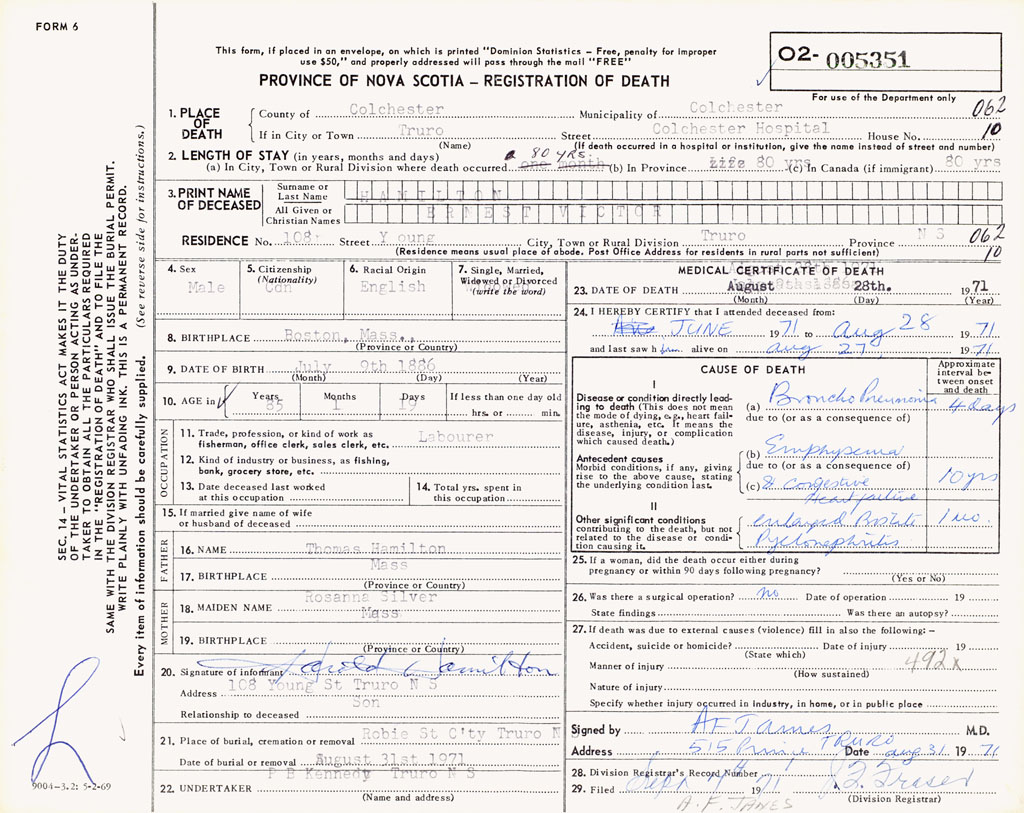 FORM 6
This form, if placed in an envelope, on which is printed "Dominion Statistics – Free, penalty for improper
use $50," and properly addressed will pass through the mail "FREE"
PROVINCE OF NOVA SCOTIA – REGISTRATION OF DEATH
02- 005351
For use of the Department only
1. PLACE OF DEATH County of Colchester Municipality of Colchester 062
If in City or Town Truro Street Colchester Hospital House No. 10
(Name) (If death occurred in a hospital or institution, give the name instead of street and number)
2. LENGTH OF STAY (in years, months and days) 80 yrs.
(a) In City, Town or Rural Division where death occurred one month (b) In Province Life 80 yrs (c) In Canada (if immigrant) 80 yrs
3. PRINT NAME OF DECEASED Surname or Last Name HAMILTON
All Given or Christian Names ERNEST VICTOR
RESIDENCE No. 108 Street Young City, Town or Rural Division Truro Province N S 062
(Residence means usual place of abode. Post Office Address for residents in rural parts not sufficient) 10
4. Sex
Male
5. Citizenship
(Nationality)
Cdn
6. Racial Origin
English
7. Single, Married,
Widowed or Divorced
(write the word)
8. BIRTHPLACE Boston, Mass.
(Province or Country)
9. DATE OF BIRTH July 9th 1886
(Month) (Day) (Year)
10. AGE in Years Months Days If less than one day old
85 1 19 hrs. or min.
OCCUPATION
11. Trade, profession, or kind of work as
fisherman, office clerk, sales clerk, etc. Labourer
12. Kind of industry or business, as fishing,
bank, grocery store, etc.
13. Date deceased last worked
at this occupation
14. Total yrs. spent in
this occupation
15. If married give name of wife
or husband of deceased
FATHER
16. NAME Thomas Hamilton
Mass
17. BIRTHPLACE
(Province or Country)
MOTHER
Rosanna Silver
18. MAIDEN NAME
Mass
19. BIRTHPLACE
(Province or Country)
20. Signature of informant Harold Hamilton
Address 108 Young St Truro N S
Son
Relationship to deceased
21. Place of burial, cremation or removal Robie St C'ty Truro N
Date of burial or removal August 31st 1971
P B Kennedy Truro N S
22. UNDERTAKER
(Name and address)
MEDICAL CERTIFICATE OF DEATH
23. DATE OF DEATH August 28th. 1971
(Month) (Day) (Year)
24. I HEREBY CERTIFY that I attended deceased from:
JUNE 1971 to Aug 28 1971
and last saw him alive on Aug 27, 1971
CAUSE OF DEATH
Approximate
interval be-
tween onset
and death
I
Disease or condition directly lead-
ing to death (This does not mean
the mode of dying, e.g., heart fail-
ure, asthenia, etc. It means the
disease, injury, or complication
which caused death.)
(a) Broncho Pneumonia 4 days
due to (or as a consequence of)
Antecedent causes
Morbid conditions, if any, giving
rise to the above cause, stating
the underlying condition last.
(b) Emphysema
due to (or as a consequence of)
(c) Congestive 10 yrs
Heart failure
II
Other significant conditions
contributing to the death, but not
related to the disease or condi-
tion causing it.
enlarged Prostate 1 mo.
Pyelonephritis
25. If a woman, did the death occur either during
pregnancy or within 90 days following pregnancy?
(Yes or No)
26. Was there a surgical operation? No Date of operation 19
State findings Was there an autopsy?
27. If death was due to external causes (violence) fill in also the following: –
Accident, suicide or homicide? Date of injury 19
(State which)
Manner of injury 492x
(How sustained)
Nature of injury
Specify whether injury occurred in industry, in home, or in public place
Signed by A F James M.D.
Address 515 Prince TRURO Date Aug 31 1971
28. Division Registrar's Record Number
29. Filed Sept 1971 Fraser
(Division Registrar)
A. F. JAMES
SEC. 14 – VITAL STATISTICS ACT MAKES IT THE DUTY
OF THE UNDERTAKER OR PERSON ACTING AS UNDER-
TAKER TO OBTAIN ALL THE PARTICULARS REQUIRED
IN THE "REGISTRATION OF DEATH" AND TO FILE THE
SAME WITH THE DIVISION REGISTRAR WHO SHALL ISSUE THE BURIAL PERMIT.
WRITE PLAINLY WITH UNFADING INK. THIS IS A PERMANENT RECORD.
Every item of information should be carefully supplied. (See reverse side for instructions.)
9004–3.2: 5-2-69